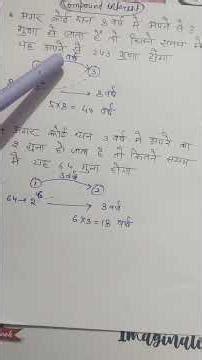 Compound interest
• अगर कोई धन 8 वर्ष में अपने से 3
गुणा हो जाता है तो कितने समय में
यह अपने से 243 गुणा होगा
वर्ष
3
8 वर्ष
5×8 = 40 वर्ष
• अगर कोई धन 3 वर्ष में अपने का
2 गुना हो जाता है तो कितने समय
में यह 64 गुना होगा
3 वर्ष
1 2
64 → 2⁶ → 3 वर्ष
6×3 = 18 वर्ष
Imaginat